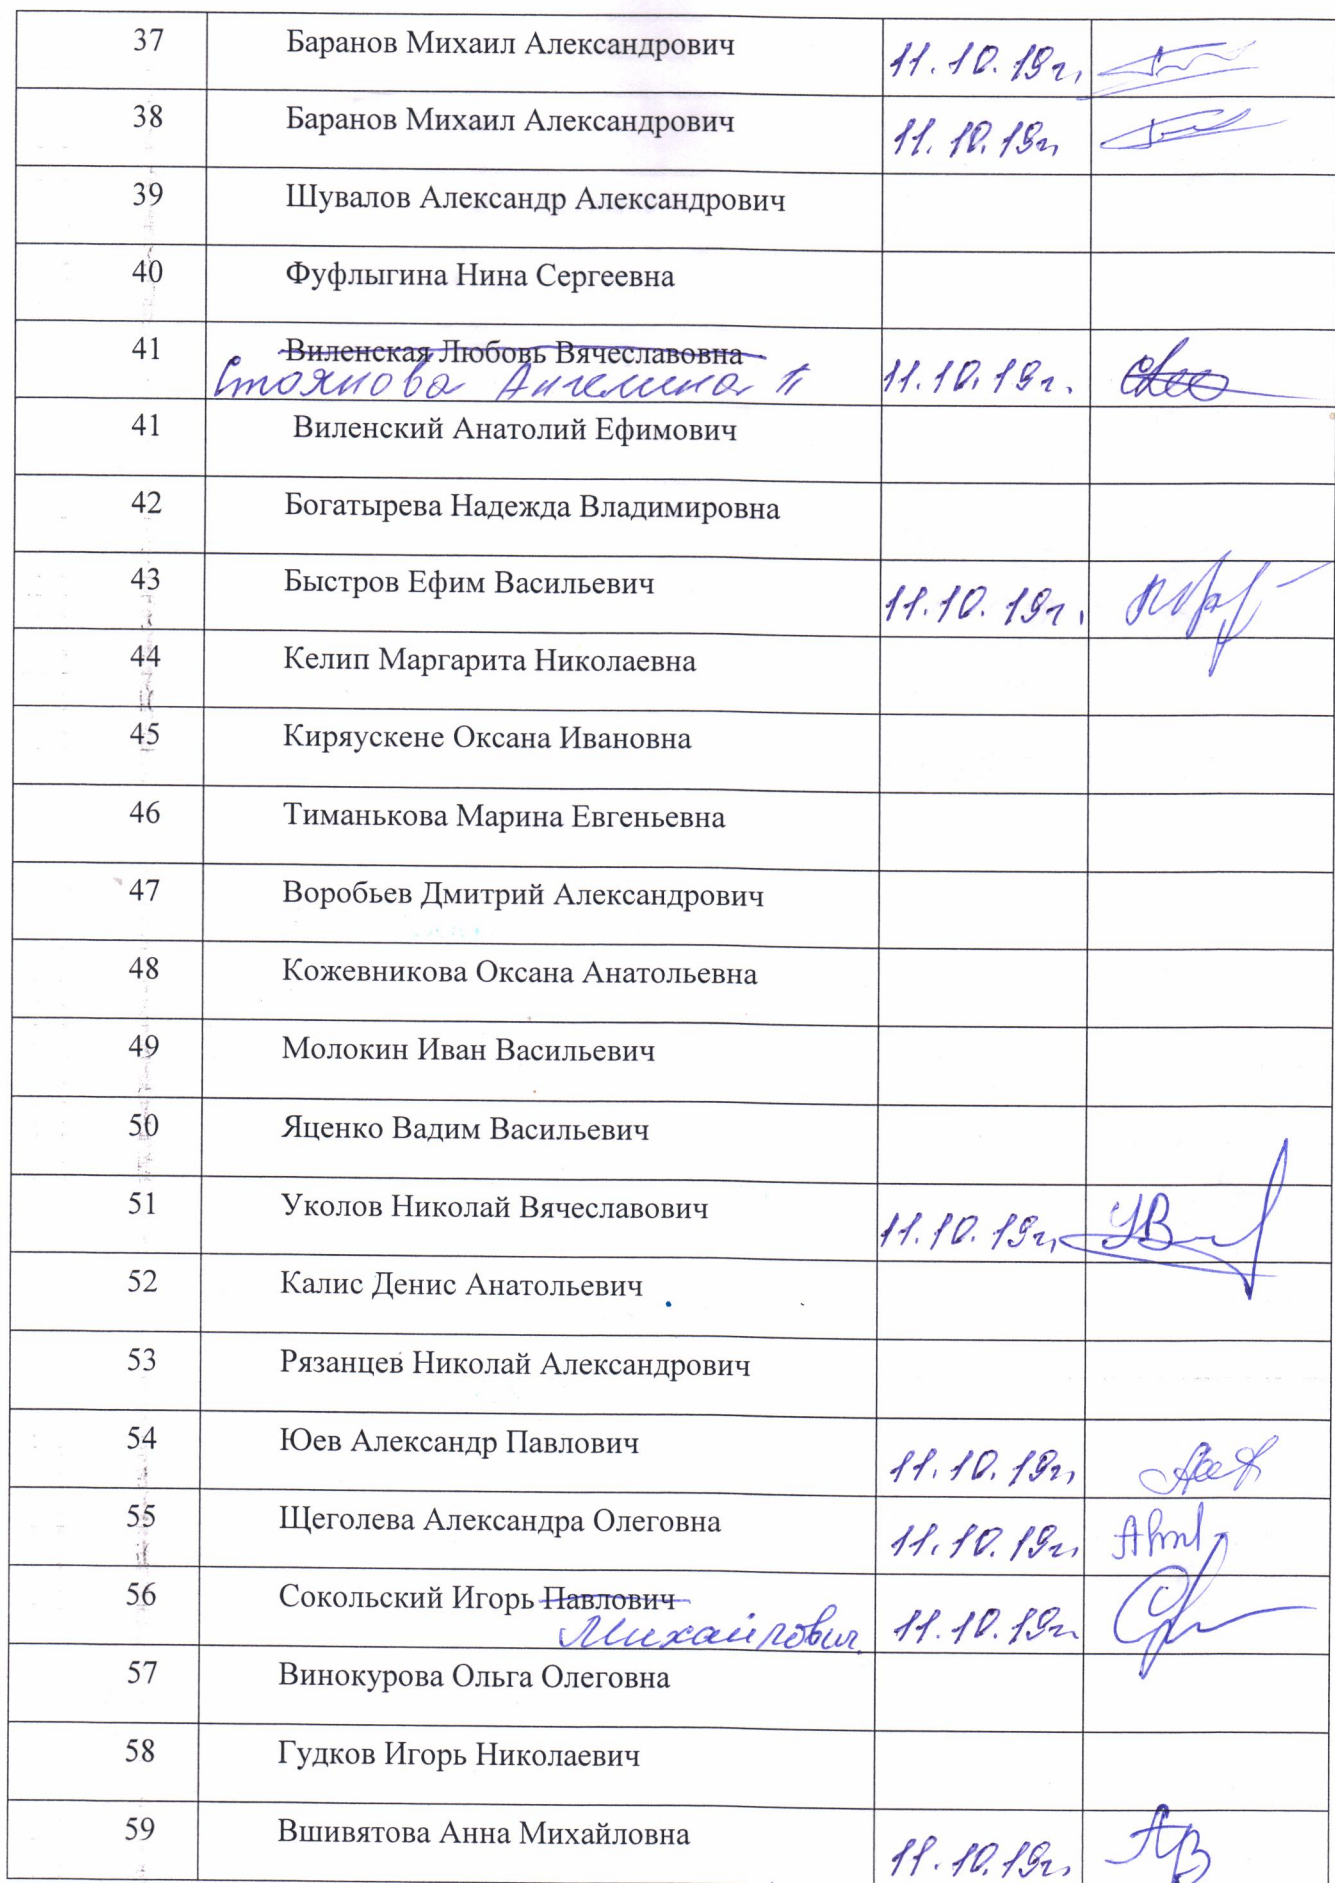 37 Баранов Михаил Александрович 11.10.19г.
38 Баранов Михаил Александрович 11.10.19г.
39 Шувалов Александр Александрович
40 Фуфлыгина Нина Сергеевна
41 Виленская Любовь Вячеславовна
Стоянова Ангелина П 11.10.19г.
41 Виленский Анатолий Ефимович
42 Богатырева Надежда Владимировна
43 Быстров Ефим Васильевич 11.10.19г.
44 Келип Маргарита Николаевна
45 Киряускене Оксана Ивановна
46 Тиманькова Марина Евгеньевна
47 Воробьев Дмитрий Александрович
48 Кожевникова Оксана Анатольевна
49 Молокин Иван Васильевич
50 Яценко Вадим Васильевич
51 Уколов Николай Вячеславович 11.10.19г.
52 Калис Денис Анатольевич
53 Рязанцев Николай Александрович
54 Юев Александр Павлович 11.10.19г.
55 Щеголева Александра Олеговна 11.10.19г.
56 Сокольский Игорь Павлович
Михайлович 11.10.19г.
57 Винокурова Ольга Олеговна
58 Гудков Игорь Николаевич
59 Вшивятова Анна Михайловна 11.10.19г.